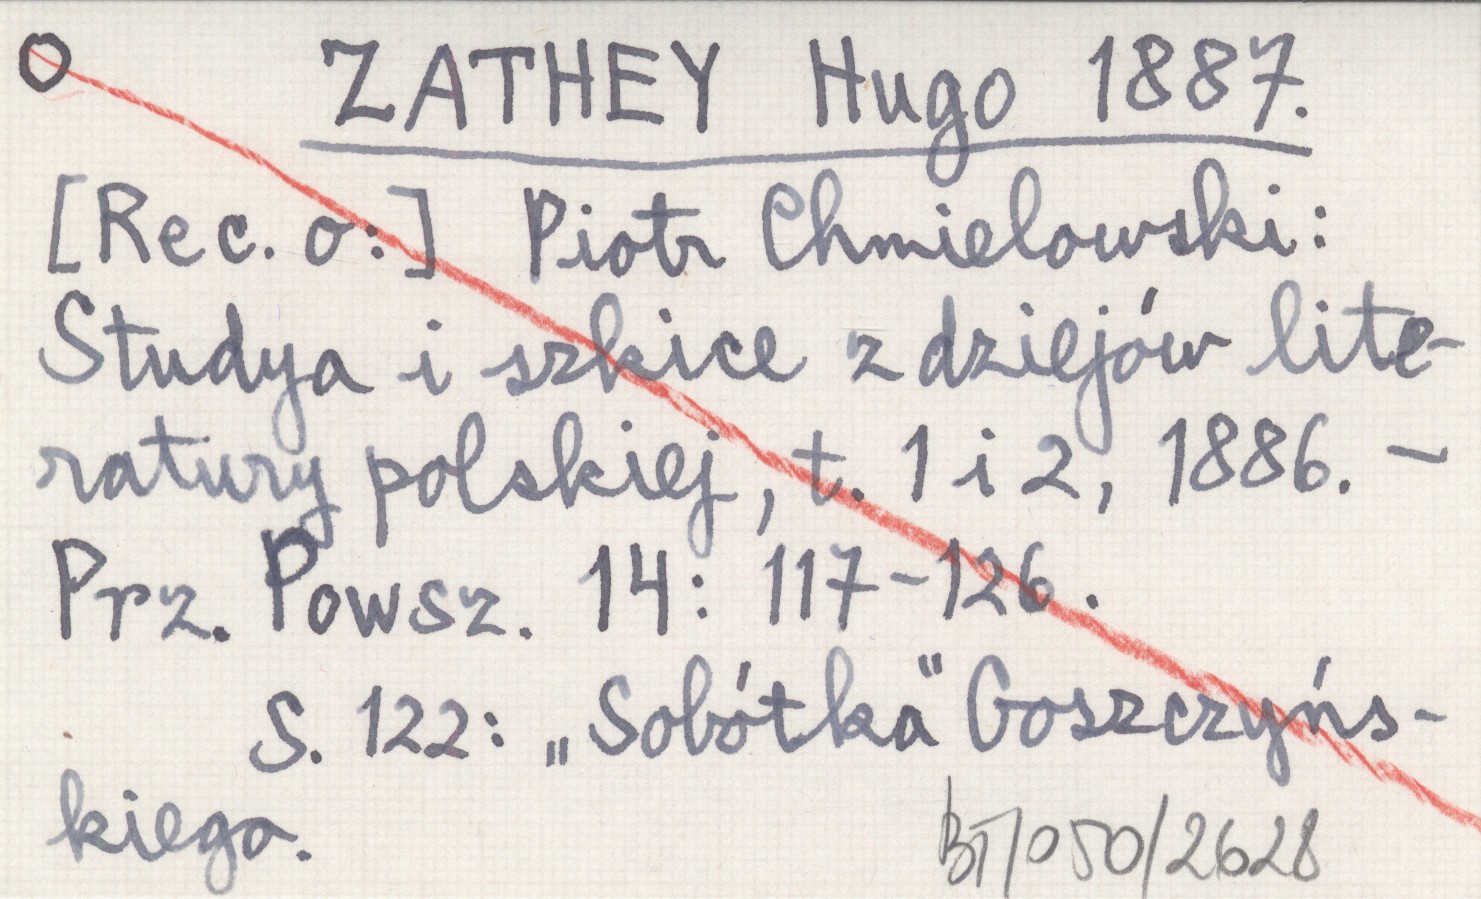 O ZATHEY Hugo 1887.
[Rec. o:] Piotr Chmielowski:
Studya i szkice z dziejów lite-
ratury polskiej, t. 1 i 2, 1886. –
Prz. Powsz. 14: 117–126.
S. 122: „Sobótka" Goszczyńs-
kiego.
BT/050/2628